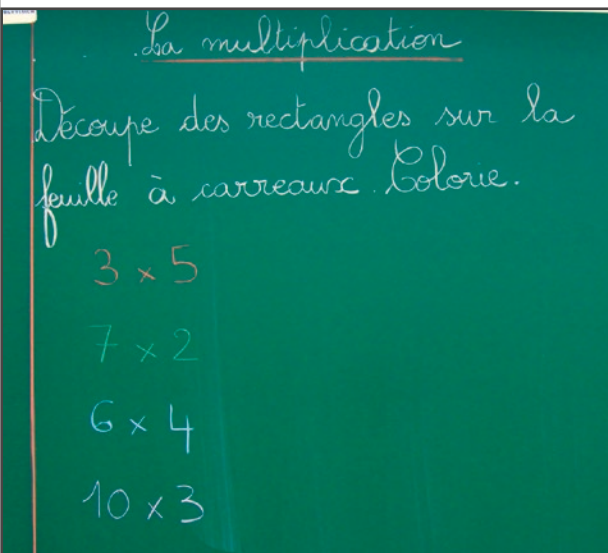 La multiplication
Découpe des rectangles sur la
feuille à carreaux. Colorie.
3 x 5
7 x 2
6 x 4
10 x 3